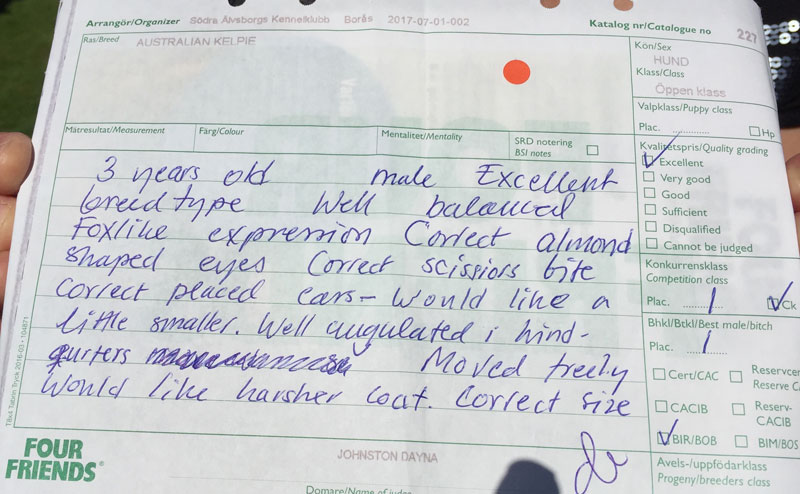 Arrangör/Organizer Södra Älvsborgs Kennelklubb Borås 2017-07-01-002 Katalog nr/Catalogue no 227
Ras/Breed AUSTRALIAN KELPIE
Kön/Sex
HUND
Klass/Class
Öppen klass
Valpklass/Puppy class
Plac. Hp
Mätresultat/Measurement Färg/Colour Mentalitet/Mentality SRD notering
BSI notes
Kvalitetspris/Quality grading
Excellent
Very good
Good
Sufficient
Disqualified
Cannot be judged
3 years old male Excellent
breed type Well balanced
Foxlike expression Correct almond
shaped eyes Correct scissiors bite
correct placed ears - Would like a
little smaller. Well angulated i hind-
qurters Moved freely
Would like harsher coat. Correct size
Konkurrensklass
Competition class
Plac. 1 Ck
Bhkl/Btkl/Best male/bitch
Plac. 1
Cert/CAC Reservcer
Reserve C
CACIB Reserv-
CACIB
BIR/BOB BIM/BOS
Avels-/uppfödarklass
Progeny/breeders class
FOUR
FRIENDS
JOHNSTON DAYNA
Domare/Name of judge